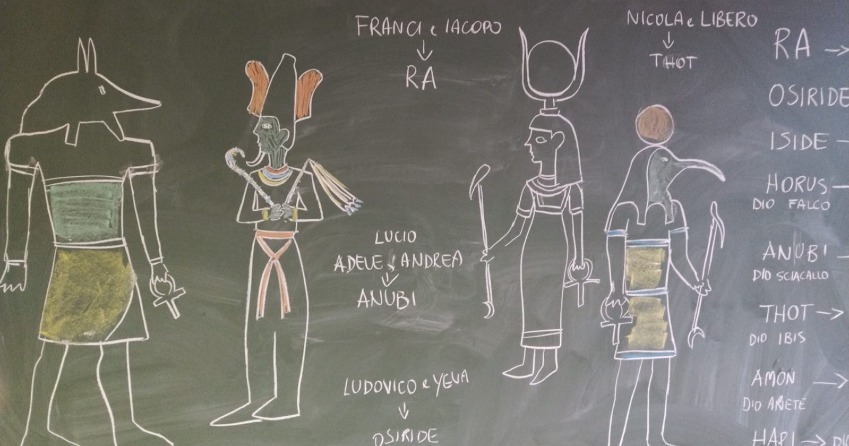 FRANCI e IACOPO
↓
RA
NICOLA e LIBERO
↓
THOT
LUCIO
ADELE e ANDREA
↓
ANUBI
LUDOVICO e YEVA
↓
OSIRIDE
RA →
OSIRIDE
ISIDE –
HORUS –
DIO FALCO
ANUBI –
DIO SCIACALLO
THOT →
DIO IBIS
AMON →
DIO ARIETE
HAPI →